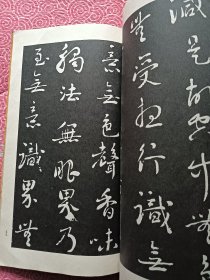 減是故空中無色
無受想行識無
意無色聲香味
觸法無眼界乃
至無意識界無